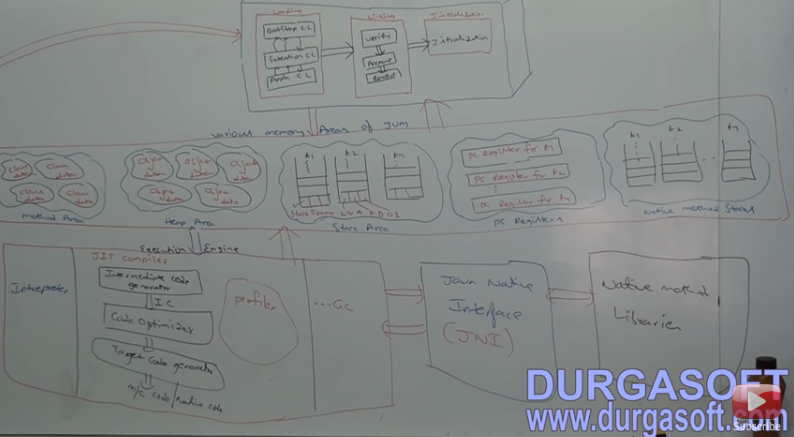 Loading
Bootstrap CL
Extention CL
Appln CL
Linking
Verify
Prepare
Resolve
Initialization
Initialization
Various memory Areas of JVM
class data
class data
class data
class data
method Area
Object data
Object data
Object data
Object data
Object data
Heap Area
t1
t2
tn
Stack Frame
LVA
OS
Stack Area
PC Register for t1
PC Register for t2
PC Register for tn
PC Registers
t1
t2
tn
Native method Stacks
Execution Engine
Interpreter
JIT compiler
Intermediate code
generator
IC
Code Optimizer
Target Code generator
m/c code / native code
profiler
...GC
Java Native
Interface
(JNI)
Native method
Libraries
DURGASOFT
www.durgasoft.com
Subscribe